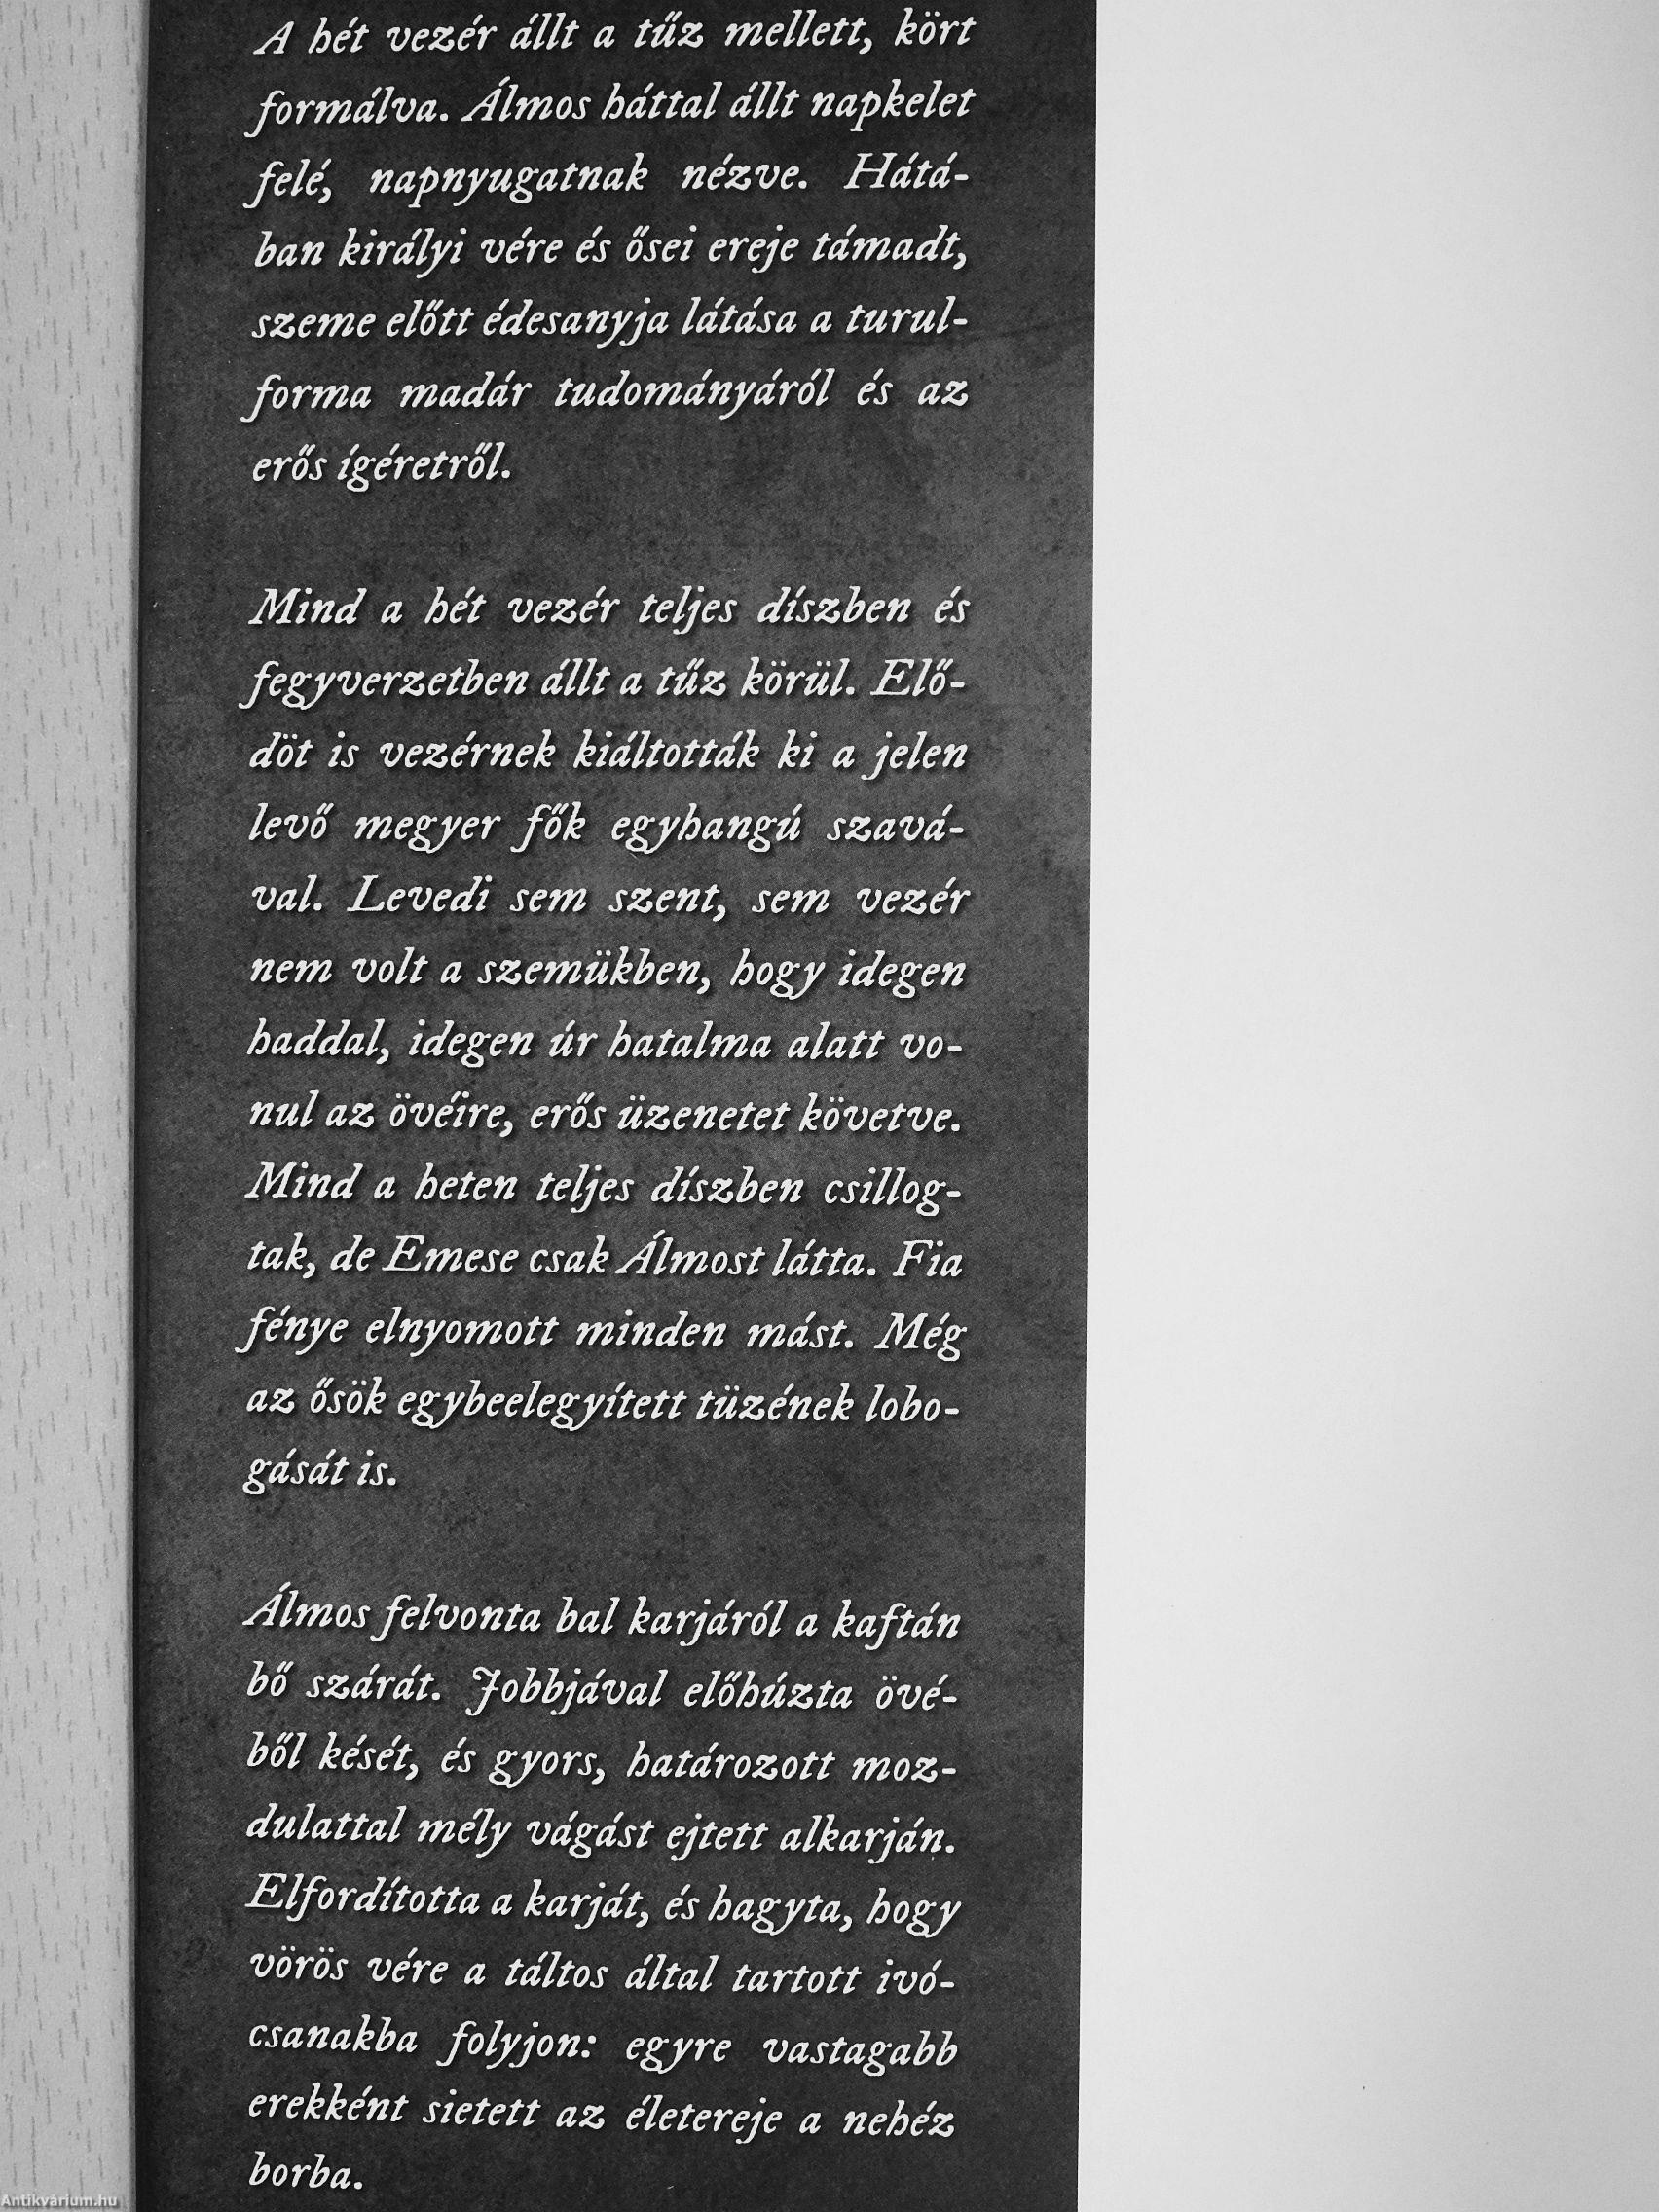 A hét vezér állt a tűz mellett, kört
formálva. Álmos háttal állt napkelet
felé, napnyugatnak nézve. Hátá-
ban királyi vére és ősei ereje támadt,
szeme előtt édesanyja látása a turul-
forma madár tudományáról és az
erős ígéretről.
Mind a hét vezér teljes díszben és
fegyverzetben állt a tűz körül. Elő-
döt is vezérnek kiáltották ki a jelen
levő megyer fők egyhangú szavá-
val. Levedi sem szent, sem vezér
nem volt a szemükben, hogy idegen
haddal, idegen úr hatalma alatt vo-
nul az övéire, erős üzenetet követve.
Mind a heten teljes díszben csillog-
tak, de Emese csak Álmost látta. Fia
fénye elnyomott minden mást. Még
az ősök egybeelegyített tüzének lobo-
gását is.
Álmos felvonta bal karjáról a kaftán
bő szárát. Jobbjával előhúzta övé-
ből kését, és gyors, határozott moz-
dulattal mély vágást ejtett alkarján.
Elfordította a karját, és hagyta, hogy
vörös vére a táltos által tartott ivó-
csanakba folyjon: egyre vastagabb
erekként sietett az életereje a nehéz
borba.
Antikvárium.hu